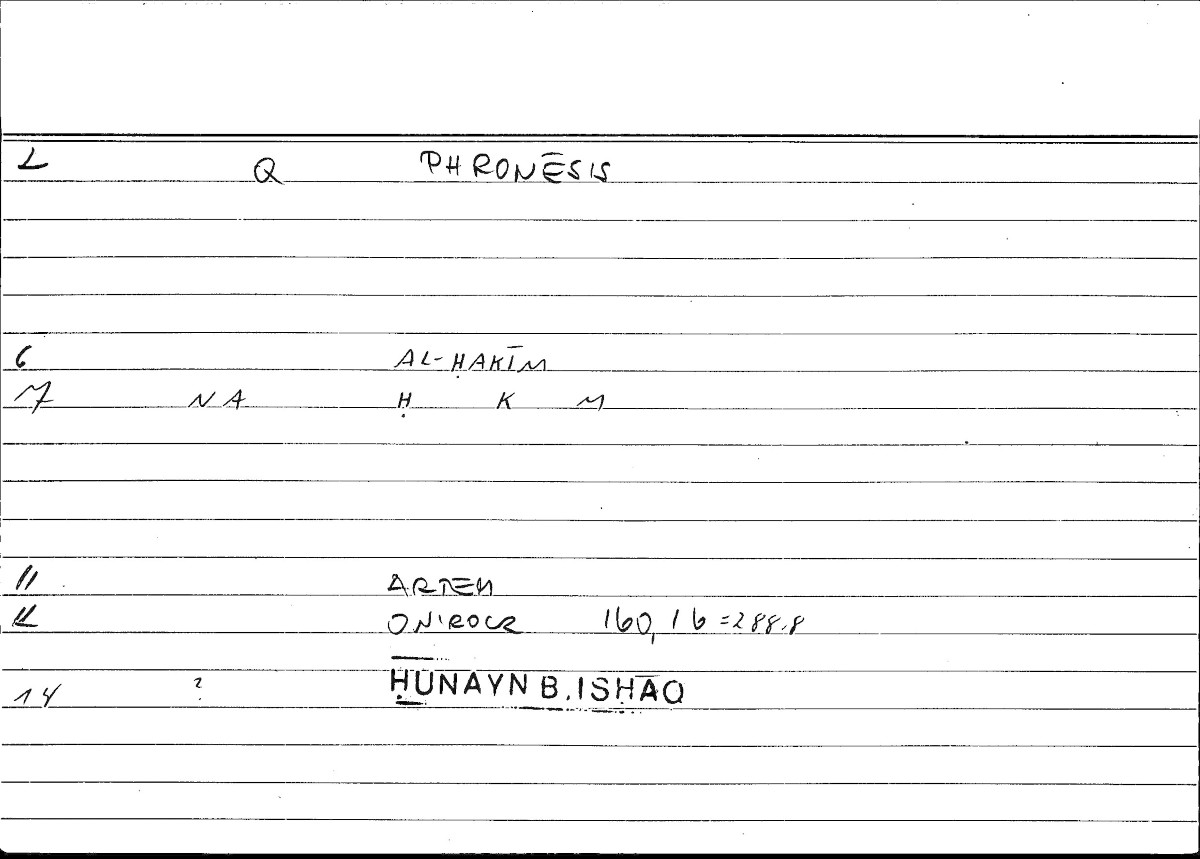 2 Q PHRONĒSIS
6 AL-ḤAKĪM
7 NA Ḥ K M
11 ARTEM
12 ONIROCR 160,16=288.8
14 ? ḤUNAYN B. ISḤĀQ